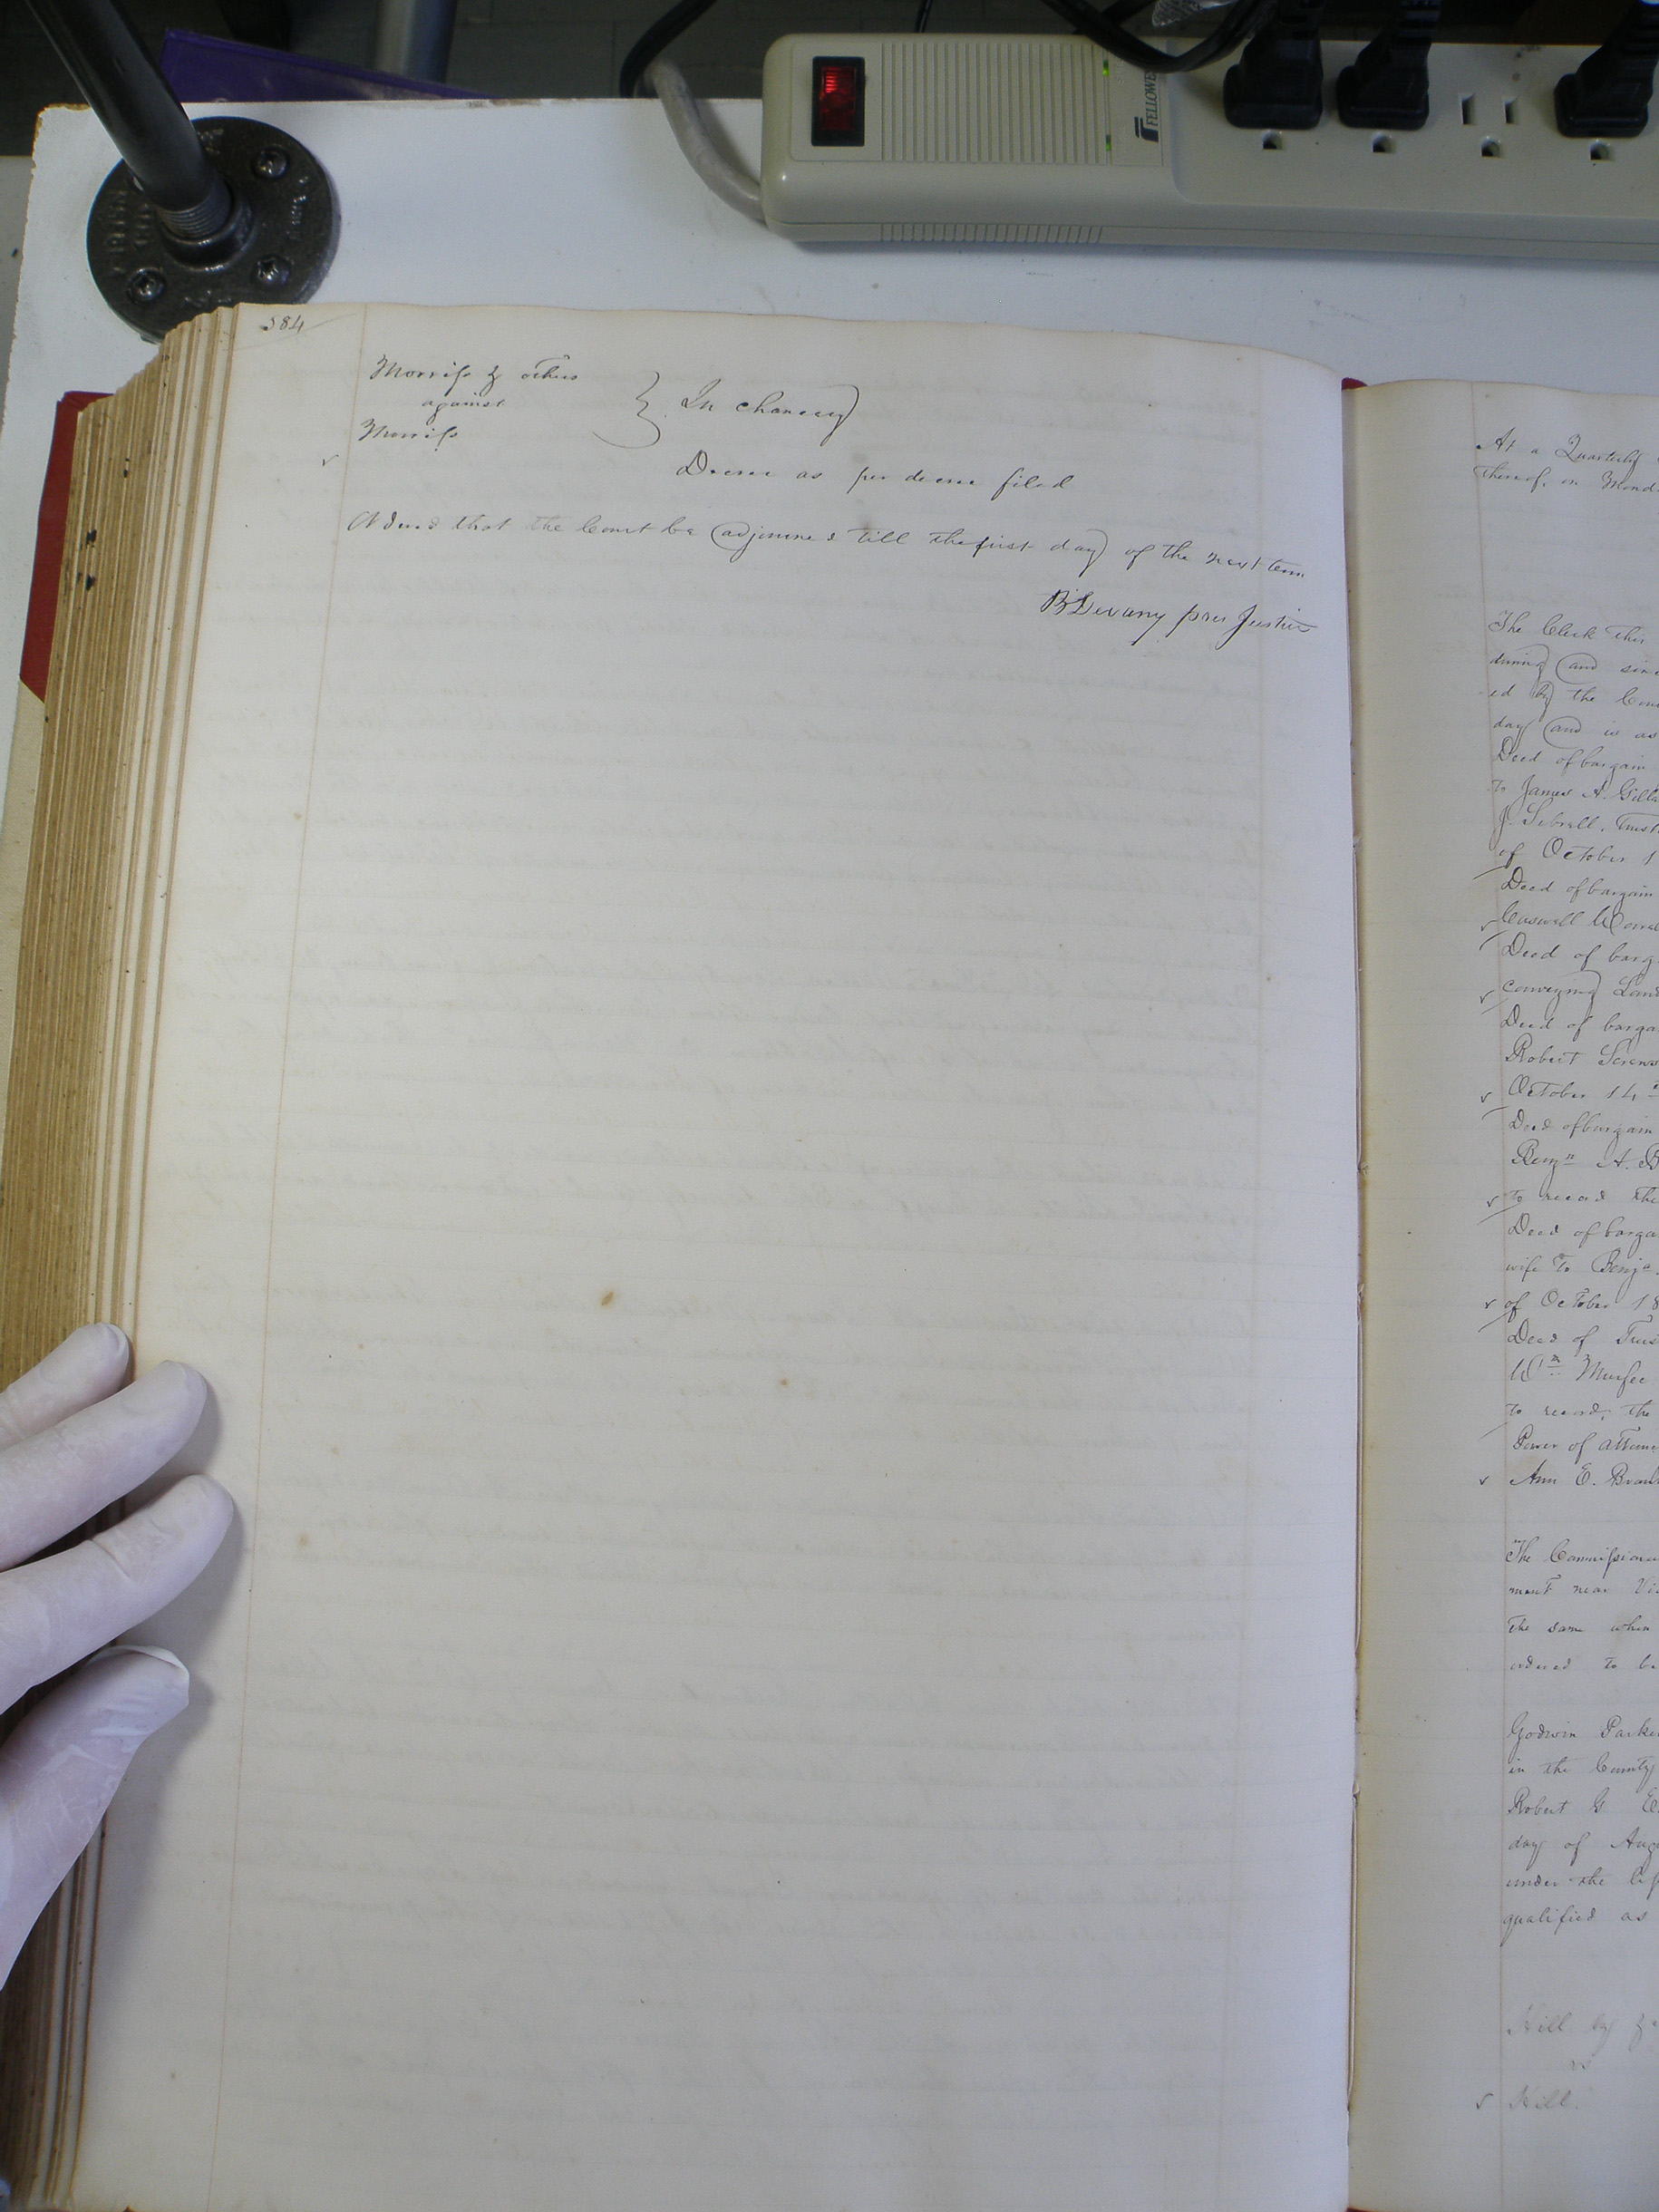 FELLOWES
584
Morriss & others
against
Morriss
In chancery
Decree as per decree filed
Ordered that the Court be adjourned till the first day of the next term
B Devany pres Justice
At a Quarterly
thereof, on Mond
The Clerk this
during and sinc
-ed by the Cou
day and is as
Deed of bargain
To James A. Gill
J. Sebrell, Trust
of October 1
Deed of bargain
Caswell Worrel
Deed of barg
conveying Land
Deed of barga
Robert Screws
October 14th
Deed of bargain
Benjn A. B
to record the
Deed of barga
wife to Benj
of October 18
Deed of Trus
Wm Murfee
to record, the
Power of attorn
Ann E. Bran
The Commissione
ment near Vi
The same when
ordered to be
Godwin Parke
in the County
Robert G. E
day of Aug
under the
qualified as
Hill by &
vs
Hill